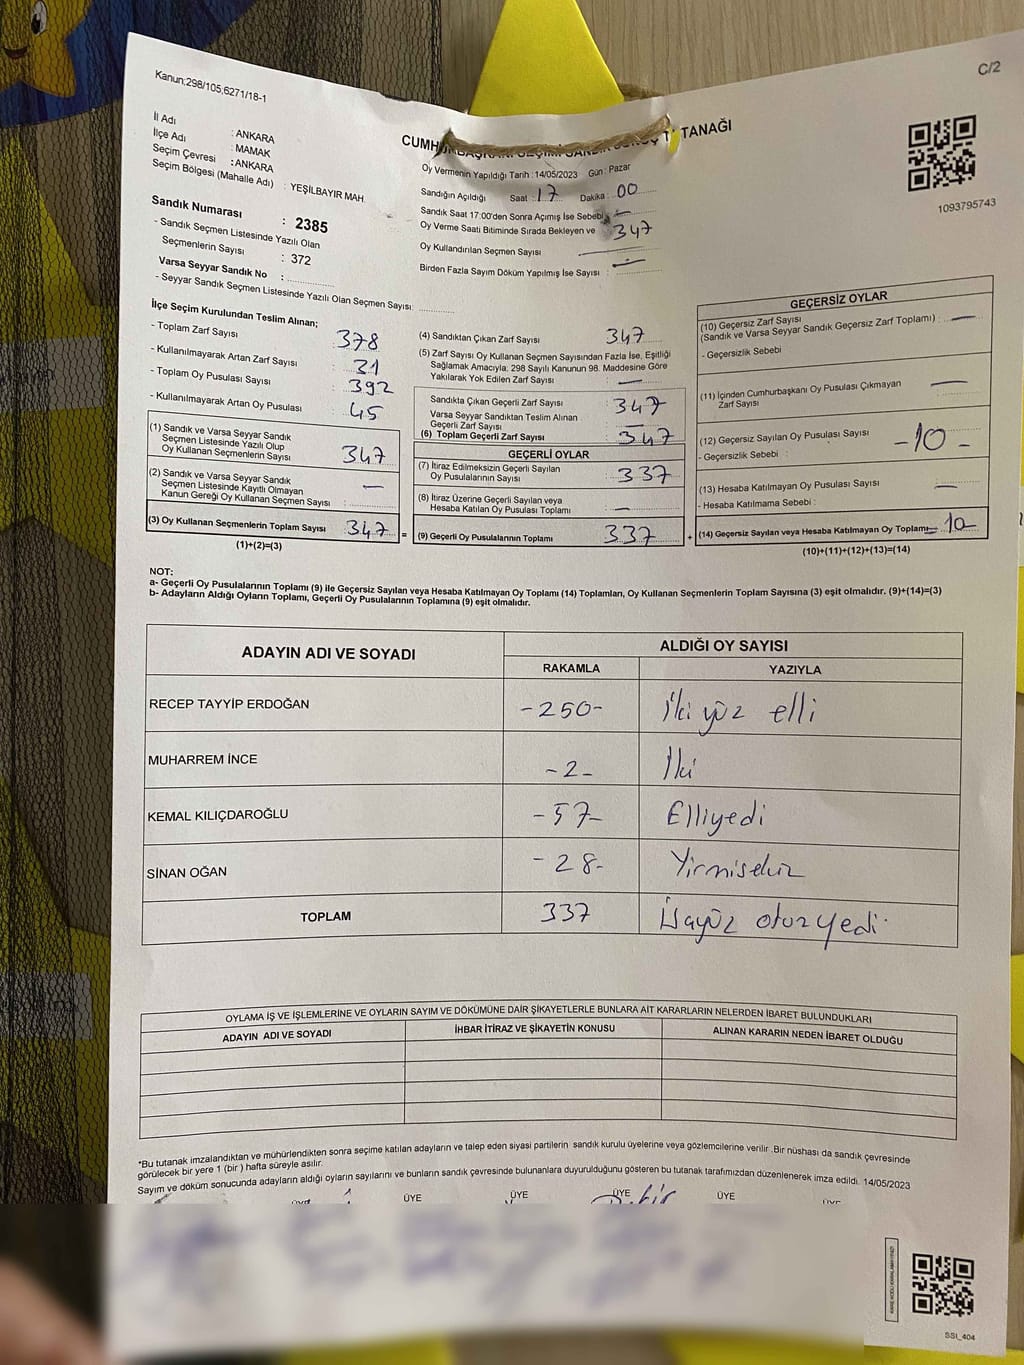 C/2
Kanun;298/105,6271/18-1
İl Adı : ANKARA
İlçe Adı : MAMAK
Seçim Çevresi : ANKARA
Seçim Bölgesi (Mahalle Adı) : YEŞİLBAYIR MAH.
Sandık Numarası : 2385
- Sandık Seçmen Listesinde Yazılı Olan
Seçmenlerin Sayısı : 372
Varsa Seyyar Sandık No :
- Seyyar Sandık Seçmen Listesinde Yazılı Olan Seçmen Sayısı:
TANAĞI
Oy Vermenin Yapıldığı Tarih :14/05/2023 Gün : Pazar
Sandığın Açıldığı Saat : 17 Dakika : 00
Sandık Saat 17:00'den Sonra Açımış İse Sebebi : —
Oy Verme Saati Bitiminde Sırada Bekleyen ve 347
Oy Kullandırılan Seçmen Sayısı
Birden Fazla Sayım Döküm Yapılmış İse Sayısı : —
1093795743
İlçe Seçim Kurulundan Teslim Alınan;
- Toplam Zarf Sayısı : 378
- Kullanılmayarak Artan Zarf Sayısı : 31
- Toplam Oy Pusulası Sayısı : 392
- Kullanılmayarak Artan Oy Pusulası : 45
(1) Sandık ve Varsa Seyyar Sandık
Seçmen Listesinde Yazılı Olup
Oy Kullanan Seçmenlerin Sayısı 347
(2) Sandık ve Varsa Seyyar Sandık
Seçmen Listesinde Kayıtlı Olmayan
Kanun Gereği Oy Kullanan Seçmen Sayısı : —
(3) Oy Kullanan Seçmenlerin Toplam Sayısı 347
(1)+(2)=(3)
(4) Sandıktan Çıkan Zarf Sayısı 347
(5) Zarf Sayısı Oy Kullanan Seçmen Sayısından Fazla İse, Eşitliği
Sağlamak Amacıyla; 298 Sayılı Kanunun 98. Maddesine Göre
Yakılarak Yok Edilen Zarf Sayısı : —
Sandıkta Çıkan Geçerli Zarf Sayısı : 347
Varsa Seyyar Sandıktan Teslim Alınan
Geçerli Zarf Sayısı : —
(6) Toplam Geçerli Zarf Sayısı : 347
GEÇERLİ OYLAR
(7) İtiraz Edilmeksizin Geçerli Sayılan
Oy Pusulalarının Sayısı : 337
(8) İtiraz Üzerine Geçerli Sayılan veya
Hesaba Katılan Oy Pusulası Toplamı : —
= (9) Geçerli Oy Pusulalarının Toplamı 337 +
GEÇERSİZ OYLAR
(10) Geçersiz Zarf Sayısı
(Sandık ve Varsa Seyyar Sandık Geçersiz Zarf Toplamı) : —
- Geçersizlik Sebebi :
(11) İçinden Cumhurbaşkanı Oy Pusulası Çıkmayan
Zarf Sayısı —
(12) Geçersiz Sayılan Oy Pusulası Sayısı -10-
- Geçersizlik Sebebi :
(13) Hesaba Katılmayan Oy Pusulası Sayısı —
- Hesaba Katılmama Sebebi :
(14) Geçersiz Sayılan veya Hesaba Katılmayan Oy Toplamı 10
(10)+(11)+(12)+(13)=(14)
NOT:
a- Geçerli Oy Pusulalarının Toplamı (9) ile Geçersiz Sayılan veya Hesaba Katılmayan Oy Toplamı (14) Toplamları, Oy Kullanan Seçmenlerin Toplam Sayısına (3) eşit olmalıdır. (9)+(14)=(3)
b- Adayların Aldığı Oyların Toplamı, Geçerli Oy Pusulalarının Toplamına (9) eşit olmalıdır.
ADAYIN ADI VE SOYADI ALDIĞI OY SAYISI
RAKAMLA YAZIYLA
RECEP TAYYİP ERDOĞAN -250- İki yüz elli
MUHARREM İNCE -2- İki
KEMAL KILIÇDAROĞLU -57- Elliyedi
SİNAN OĞAN -28-
TOPLAM 337
OYLAMA İŞ VE İŞLEMLERİNE VE OYLARIN SAYIM VE DÖKÜMÜNE DAİR ŞİKAYETLERLE BUNLARA AİT KARARLARIN NELERDEN İBARET BULUNDUKLARI
ADAYIN ADI VE SOYADI İHBAR İTİRAZ VE ŞİKAYETİN KONUSU ALINAN KARARIN NEDEN İBARET OLDUĞU
*Bu tutanak imzalandıktan ve mühürlendikten sonra seçime katılan adayların ve talep eden siyasi partilerin sandık kurulu üyelerine veya gözlemcilerine verilir. Bir nüshası da sandık çevresinde
görülecek bir yere 1 (bir ) hafta süreyle asılır.
Sayım ve döküm sonucunda adayların aldığı oyların sayılarını ve bunların sandık çevresinde bulunanlara duyurulduğunu gösteren bu tutanak tarafımızdan düzenlenerek imza edildi. 14/05/2023
ÜYE ÜYE ÜYE ÜYE
SSI_404